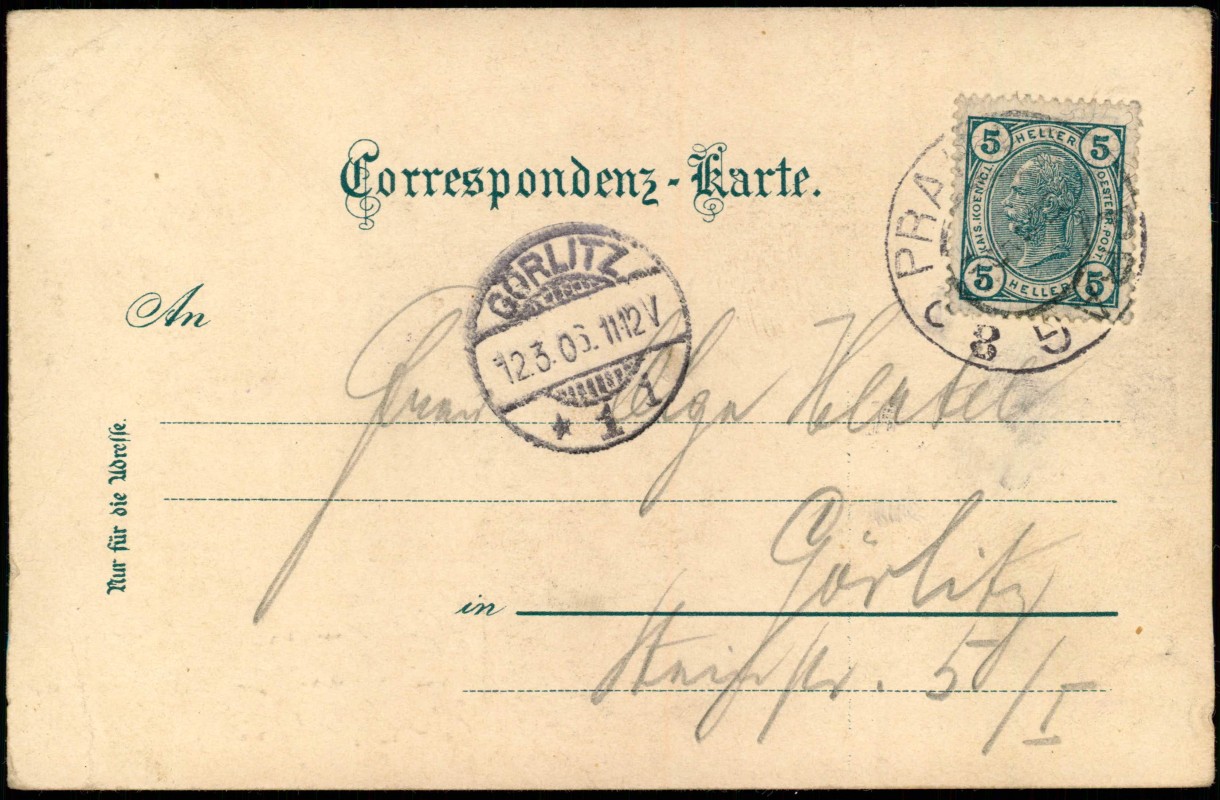 Correspondenz-Karte.
5 HELLER 5
KAIS. KOENIGL. OESTERR. POST
5 HELLER 5
PRA
8 5
GÖRLITZ
12.3.06. 11-12V
* 1 i
An
Frau Olga Hertel
Görlitz
in
5/I
Nur für die Adresse.